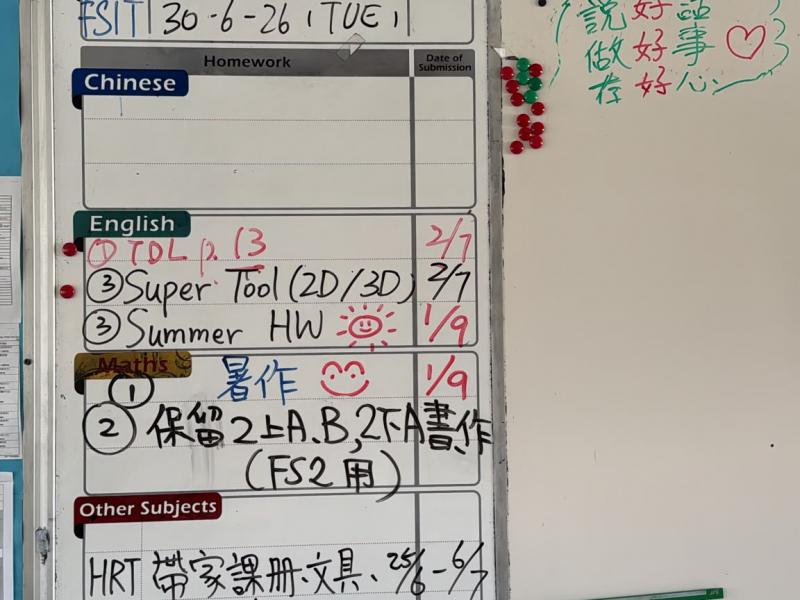 FSIT 30-6-26 (TUE)
Homework Date of Submission
Chinese
English
① TDL p. 13 2/7
③ Super Tool (2D/3D) 2/7
③ Summer HW 1/9
Maths
① 暑作 1/9
② 保留2上A、B,2下A書、作
(FS2用)
Other Subjects
HRT 帶家課冊、文具、25/6-6/7
說好話
做好事
存好心